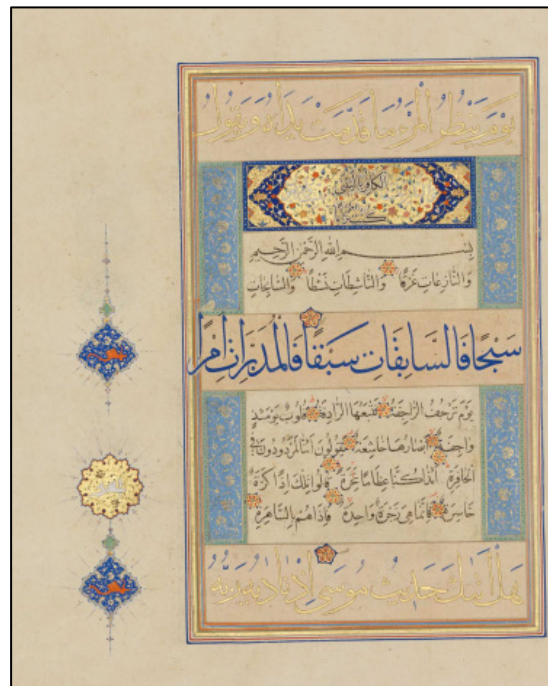 يَوْمَ يَنْظُرُ الْمَرْءُ مَا قَدَّمَتْ يَدَاهُ وَيَقُولُ
الْكَافِرُ يَالَيْتَنِي
كُنْتُ تُرَابًا
بِسْمِ اللهِ الرَّحْمٰنِ الرَّحِيمِ
وَالنَّازِعَاتِ غَرْقًا وَالنَّاشِطَاتِ نَشْطًا وَالسَّابِحَاتِ
سَبْحًا فَالسَّابِقَاتِ سَبْقًا فَالْمُدَبِّرَاتِ أَمْرًا
يَوْمَ تَرْجُفُ الرَّاجِفَةُ تَتْبَعُهَا الرَّادِفَةُ قُلُوبٌ يَوْمَئِذٍ
وَاجِفَةٌ أَبْصَارُهَا خَاشِعَةٌ يَقُولُونَ أَئِنَّا لَمَرْدُودُونَ فِي
الْحَافِرَةِ أَئِذَا كُنَّا عِظَامًا نَخِرَةً قَالُوا تِلْكَ إِذًا كَرَّةٌ
خَاسِرَةٌ فَإِنَّمَا هِيَ زَجْرَةٌ وَاحِدَةٌ فَإِذَا هُمْ بِالسَّاهِرَةِ
هَلْ أَتٰيكَ حَدِيثُ مُوسَى إِذْ نَادٰيهُ رَبُّهُ